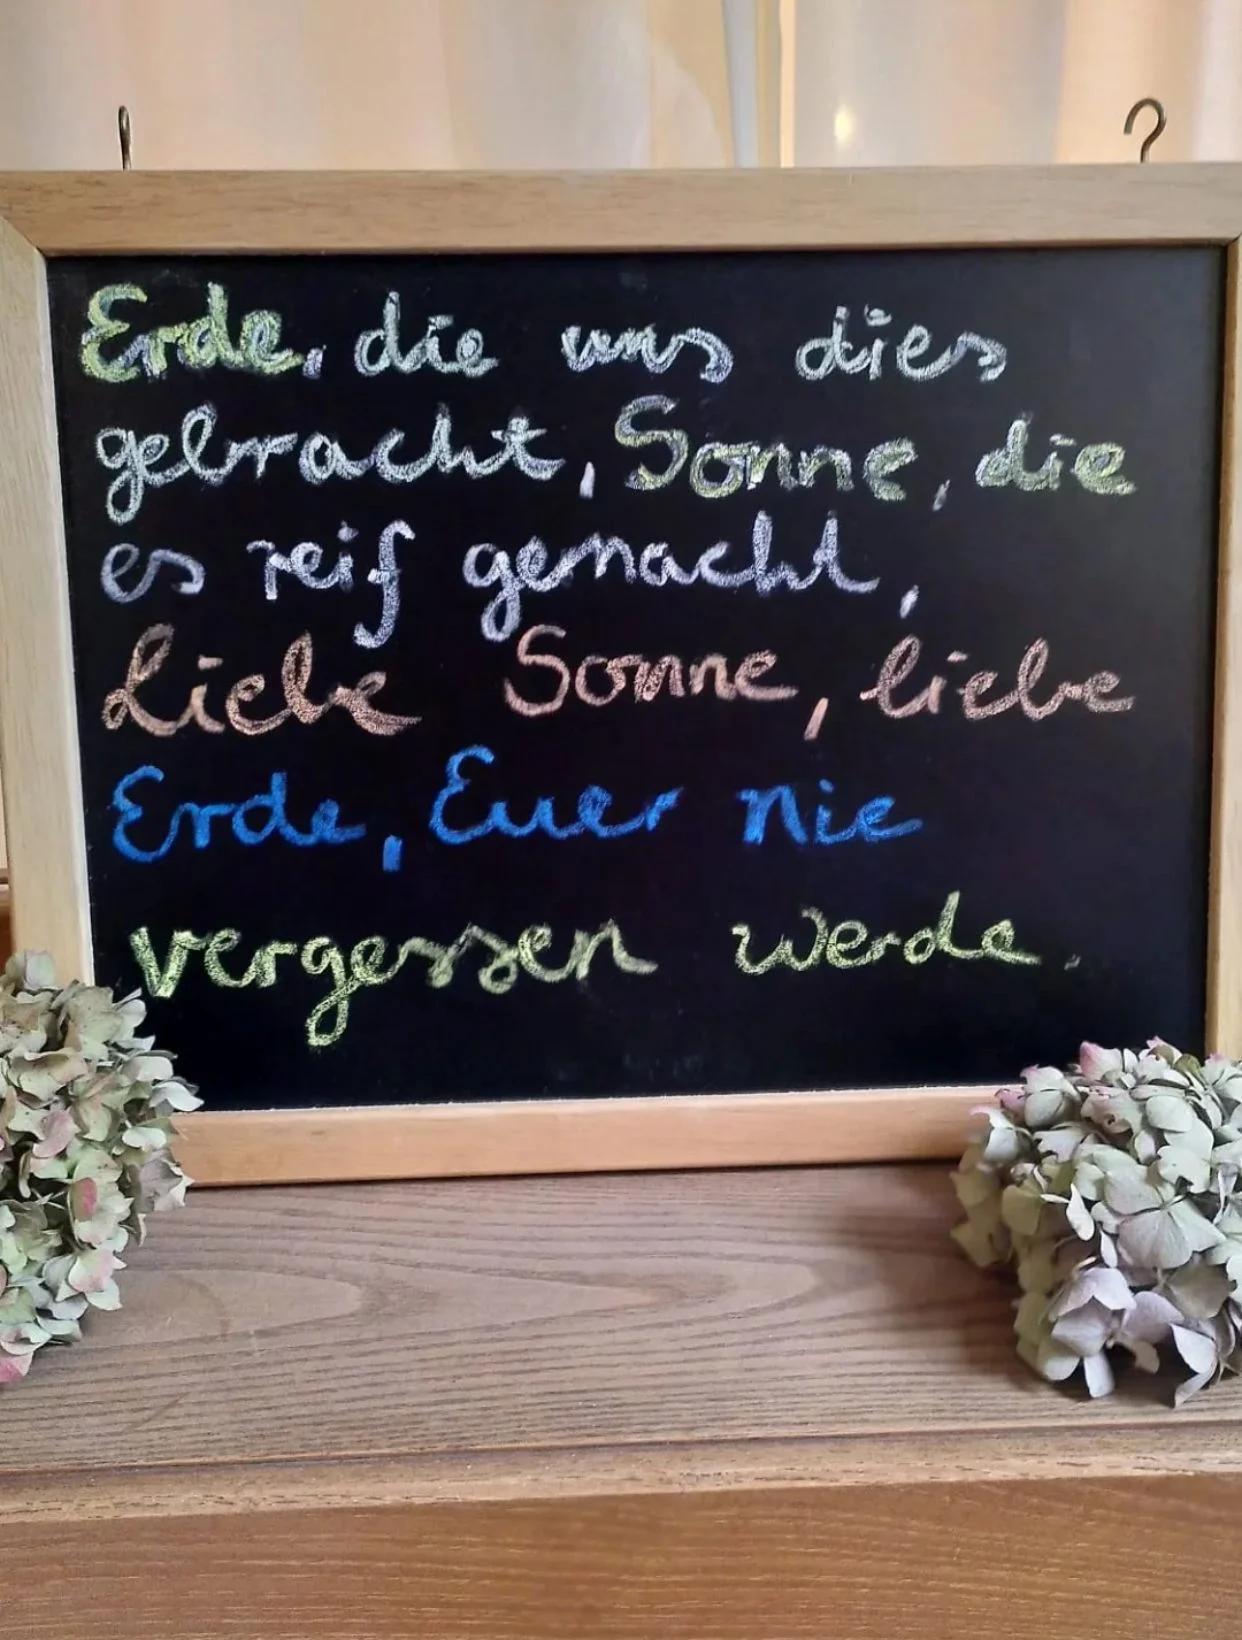 Erde, die uns dies
gebracht, Sonne, die
es reif gemacht,
Liebe Sonne, liebe
Erde, Euer nie
vergessen werde.